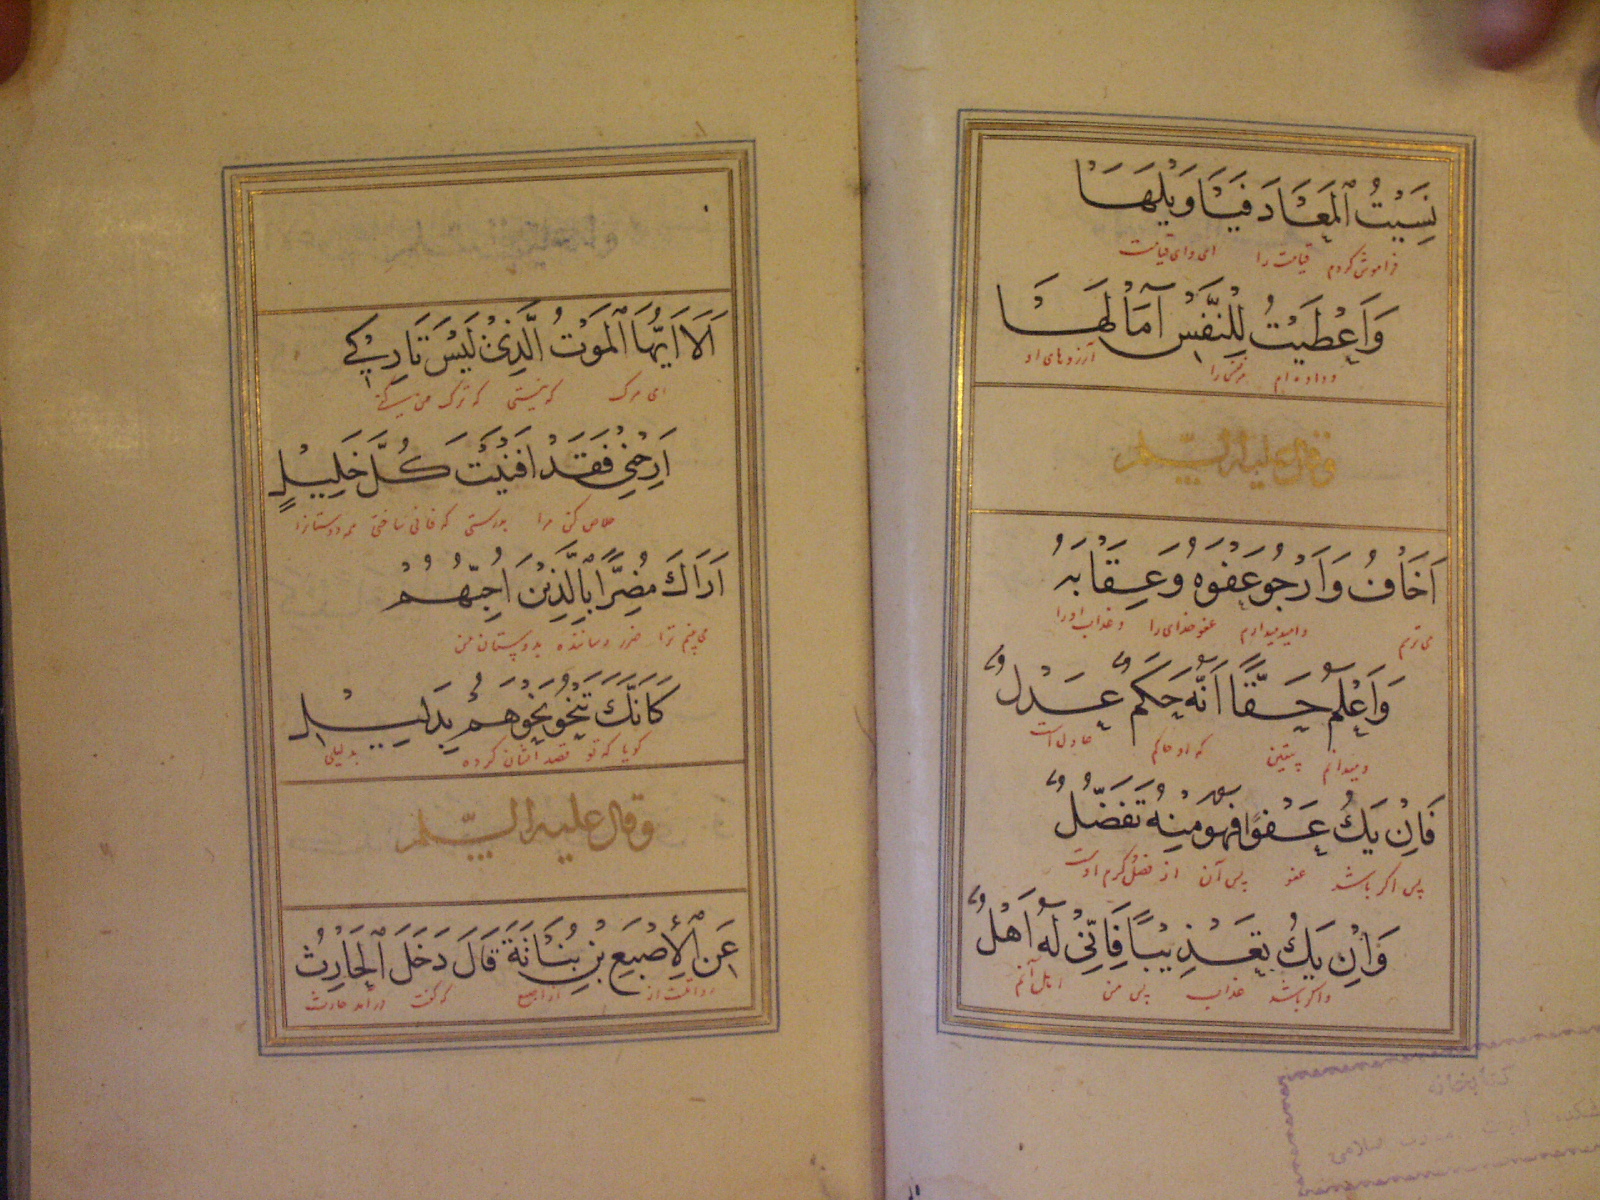 نَسِيْتُ الْمَعَادَ فَيَا وَيْلَهَا
فراموش کردم قیامت را ای وای قیامت
وَاَعْطَيْتُ لِلنَّفْسِ آمَالَهَا
و داده ام مر نفس را آرزوهای او
وقال علیه السلم
اَخَافُ وَاَرْجُو عَفْوَهُ وَعِقَابَهُ
می ترسم و امید میدارم عفو خدای را و عذاب او را
وَاَعْلَمُ حَقًّا اَنَّهُ حَكَمٌ عَدْلٌ
و میدانم بیقین که او حاکم عادل است
فَاِنْ يَكُ عَفْوًا فَهُوَ مِنْهُ تَفَضُّلٌ
پس اگر باشد عفو پس آن از فضل کرم اوست
وَاِنْ يَكُ تَعْذِيْبًا فَاِنِّيْ لَهُ اَهْلٌ
و اگر باشد عذاب پس من اهل آنم
اَلَا اَيُّهَا الْمَوْتُ الَّذِيْ لَيْسَ تَارِكِيْ
ای مرک که نیستی که ترک من
اَرِحْنِيْ فَقَدْ اَفْنَيْتَ كُلَّ خَلِيْلٍ
خلاص کن مرا بدرستی که فانی ساختی همه دوستانرا
اَرَاكَ مُضِرًّا بِالَّذِيْنَ اُحِبُّهُمْ
می بینم ترا ضرر رساننده بدوستان من
كَاَنَّكَ تَنْحُوْ نَحْوَهُمْ بِدَلِيْلٍ
گویا که تو قصد ایشان کرده بدلیلی
وقال علیه السلم
عَنِ الْاَصْبَغِ بْنِ نُبَاتَةَ قَالَ دَخَلَ الْحَارِثُ
روایتست از اصبغ که گفت درآمد حارث
کتابخانه